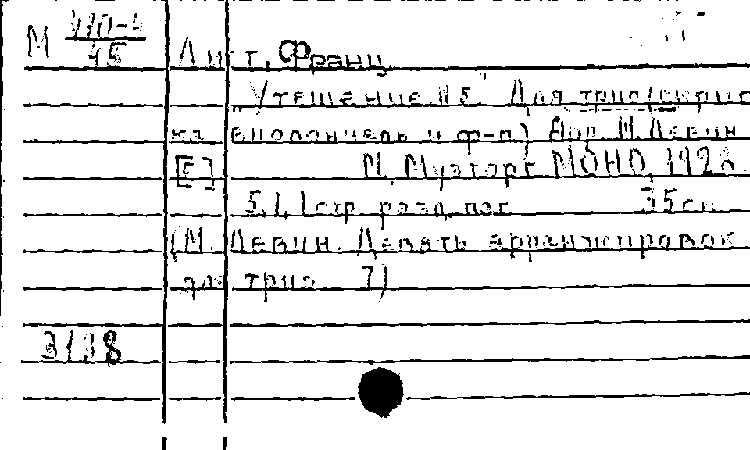 М VIII-4
45 Лист, Франц
"Утешение №5" Для трио (скрип
ка виолончель и ф-п) Аор. М. Девин
[Е] М, Музторг МОНО, 192
5,1, 1 стр. разд. паг. 35 см.
(М. Девин. Девять арранжировок
для трио 7)
3138